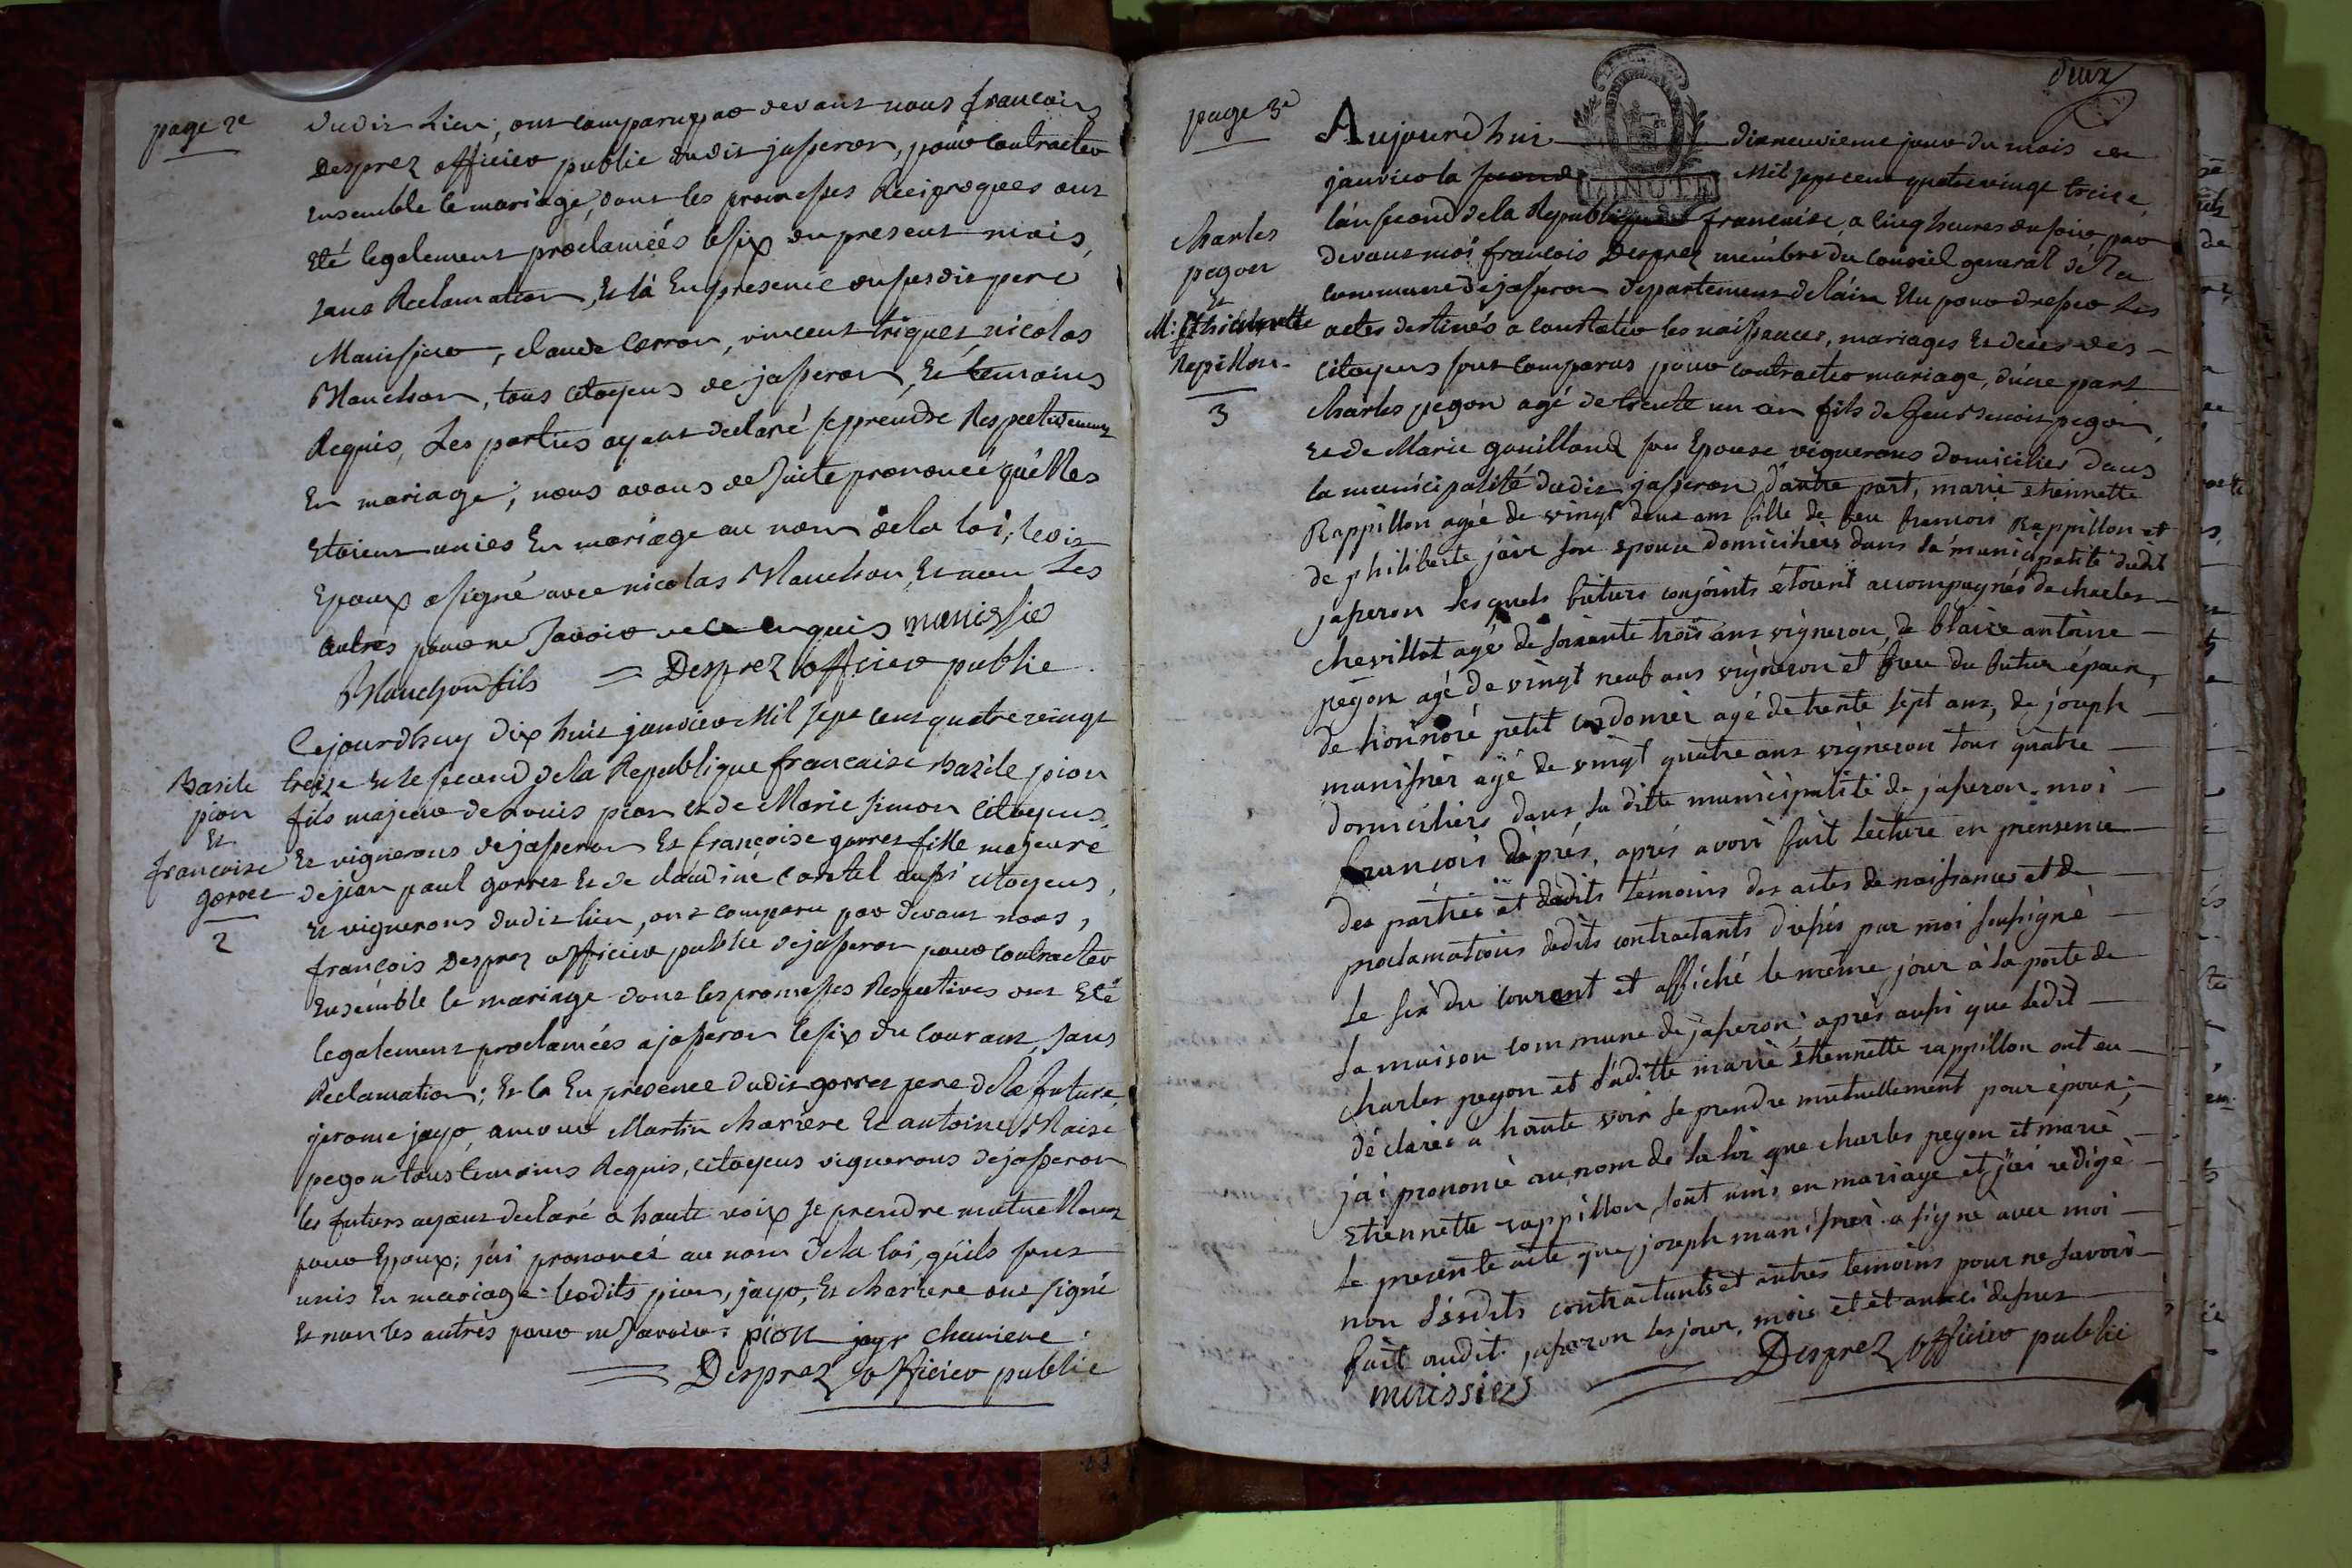 page 2e
dudit Lieu, ont comparu par devant nous francois
Desprez officier public dudit jasseron, pour contracter
Ensemble le mariage, dont les promesses Réciproques ont
Eté legalement proclamées le six du present mois,
sans Reclamation, Et là En presence du susdit pere
Manissier, claude Carron, vincent triquet, nicolas
Mauchon, tous citoyens de jasseron, Et temoins
Requis, Les parties ayant declaré se prendre Respectivement
En mariage; nous avons de suite prononcé qu'elles
Etoient unies En mariage au nom de la loi; ledit
Epoux a signé avec nicolas Mauchon Et non Les
autres pour ne Savoir de ce enquis manissier
Mauchon fils = Desprez officier public
Basile
pion
Et
francoise
gorrez
2
Cejourdhuy dix huit janvier Mil sept cent quatre vingt
treize Et le second de la Republique francaise Bazile pion
fils majeur de Louis pion et de Marie simon citoyens
Et vignerons de jasseron Et françoise gorrez fille majeure
de jean paul gorrez Et de claudine Cartel aussi citoyens,
Et vignerons dudit lieu, ont comparu par devant nous,
françois Desprez officier public de jasseron pour contracter
Ensemble le mariage dont les promesses Respectives ont Eté
legalement proclamées a jasseron le six du courant, sans
Reclamation; Et la En presence dudit gorrez pere de la future,
jerome jayr, Martin chariere Et antoine Blaise
pegon tous temoins Requis, citoyens vignerons de jasseron
les futurs ayant declaré a haute voix se prendre mutuellement
pour Epoux; j'ai prononcé au nom de la loi, qu'ils sont
unis En mariage. lesdits pion, jayr, Et chariere ont signé
Et non les autres pour ne savoir. pion jayr chariere.
= Desprez officier public
deux
page 3e
MINUTE
Charles
pegon
Et
M: Ethiennette
Rapillon
3
Aujourd'hui dixneuvieme jour du mois de
janvier la second Mil sept cent quatre vingt treize,
l'an second de la Republique française, a cinq heures du soir par
devant moi françois Desprez membre du conseil general de la
commune de jasseron departement de l'ain Elu pour dresser Les
actes destinés a constater les naissances, mariages Et deces des
citoyens sont comparus pour contracter mariage, d'une part
Charles pegon agé de trente un an fils de feu Benoit pegon,
Et de Marie gouilloud son Epouse vignerons domiciliés dans
la municipalité dudit jasseron d'autre part, marie ethiennette
Rappillon agée de vingt deux ans fille de feu francois Rappillon et
de philiberte jair son epouse domiciliés dans la municipalité dudit
jaseron lesquels futurs conjoints étoient accompagnés de charles
chevillot agé de soixante trois ans vigneron, de blaise antoine
pegon agé de vingt neuf ans vigneron et frere du futur époux,
de honnoré petit cordonier agé de trente sept ans, de joseph
manissier agé de vingt quatre ans vigneron tous quatre
domiciliers dans la ditte municipalité de jaseron. moi
francois deprés, aprés avoir fait lecture en prensence
des parties et dedits témoins des actes de naissances et de
proclamations dedits contractants dressés par moi soussigné
le six du courant et affiché le même jour à la porte de
la maison commune de jaseron, après aussi que ledit
charles pegon et ladite marie ethennette rappillon ont eu
déclarée a haute voix se prendre mutuellement pour époux;
j'ai prononcé au nom de la loi que charles pegon et marie
Ethennette rappillon sont unis en mariage et j'ai rédigé
le presente acte que joseph manissier a signé avec moi
non lesdits contractants et autres temoins pour ne savoir
fait audit jaseron les jour, mois et an ci dessus
manissier Desprez officier public